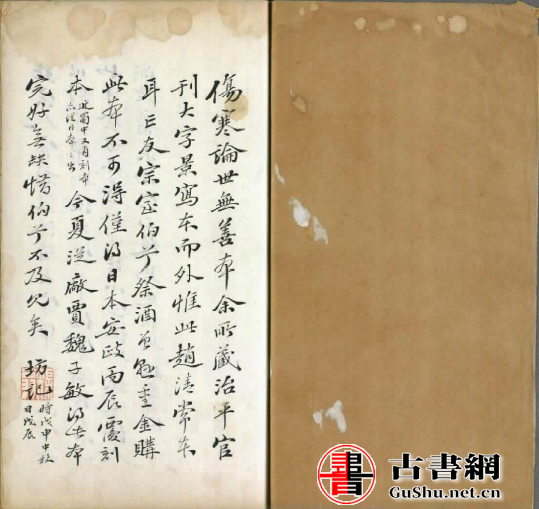 傷寒論世無善本余所藏治平官
刊大字景寫本而外惟此趙清常本
耳亡友宗室伯兮祭酒曾懸重金購
此本不可得僅得日本安政丙辰覆刻
本近蜀中又有刻本亦從日本之出今夏從廠賈魏子敏得此本
完好無缺惜伯兮不及見矣 坊記時戊申中秋日戊辰
古書網
GuShu.net.cn